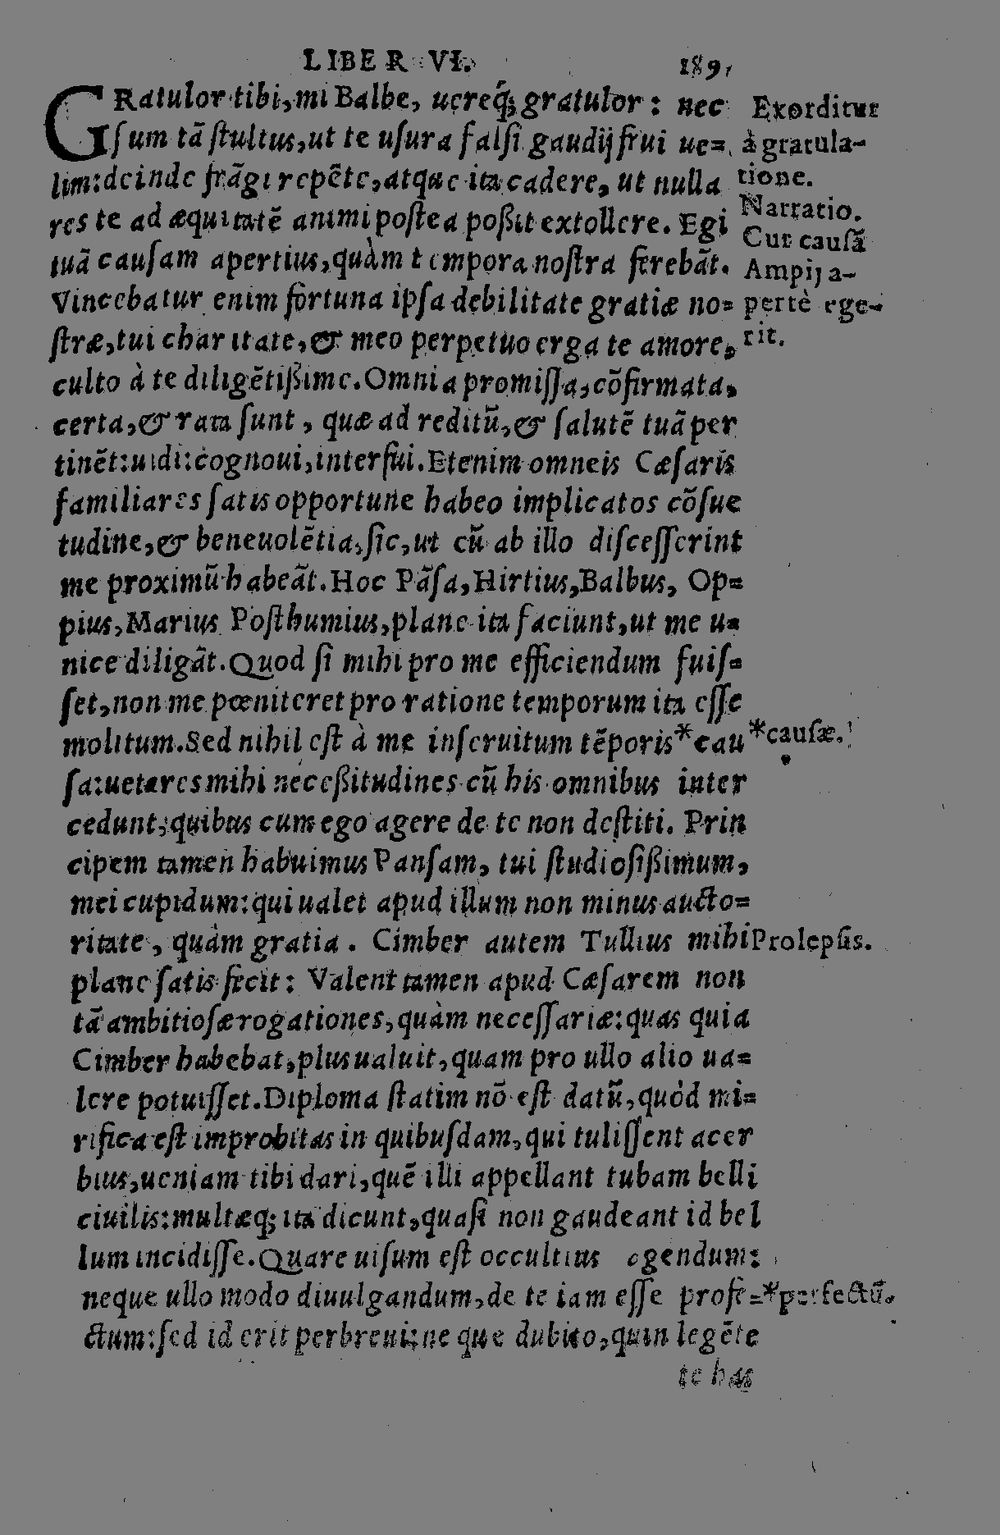 LIBER VI. 189
GRatulor tibi, mi Balbe, uereq́; gratulor: nec
sum tā stultus, ut te usura falsi gaudij frui ue=
lim: deinde frāgi repēte, atque ita cadere, ut nulla
res te ad æquitatē animi postea poßit extollere. Egi
tuā causam apertius, quàm tempora nostra ferebāt.
Vincebatur enim fortuna ipsa debilitate gratiæ no=
stræ, tui charitate, & meo perpetuo erga te amore,
culto à te diligētißime. Omnia promissa, cōfirmata,
certa, & rata sunt, quæ ad reditū, & salutē tuā per
tinēt: uidi: cognoui, interfui. Etenim omneis Cæsaris
familiares satis opportune habeo implicatos cōsue
tudine, & beneuolētia, sic, ut cū ab illo discesserint
me proximū habeāt. Hoc Pāsa, Hirtius, Balbus, Op=
pius, Marius Posthumius, plane ita faciunt, ut me u=
nice diligāt. Quod si mihi pro me efficiendum fuis=
set, non me pœniteret pro ratione temporum ita esse
molitum. Sed nihil est à me inseruitum tēporis *cau
sa: ueteres mihi neceßitudines cū his omnibus inter
cedunt, quibus cum ego agere de te non destiti. Prin
cipem tamen habuimus Pansam, tui studiosißimum,
mei cupidum: qui ualet apud illum non minus aucto=
ritate, quàm gratia. Cimber autem Tullius mihi
plane satis fecit: Valent tamen apud Cæsarem non
tā ambitiosæ rogationes, quàm necessariæ: quas quia
Cimber habebat, plus ualuit, quam pro ullo alio ua=
lere potuisset. Diploma statim nō est datū, quòd mi=
rifica est improbitas in quibusdam, qui tulissent acer
bius, ueniam tibi dari, quē illi appellant tubam belli
ciuilis: multæq; ita dicunt, quasi non gaudeant id bel
lum incidisse. Quare uisum est occultius agendum:
neque ullo modo diuulgandum, de te iam esse profe=
ctum: sed id erit perbreui: neque dubito, quin legēte
te has
Exorditur
à gratula-
tione.
Narratio.
Cur causā
Ampij a-
pertè ege-
rit.
*causæ.
Prolepsis.
*perfectū.